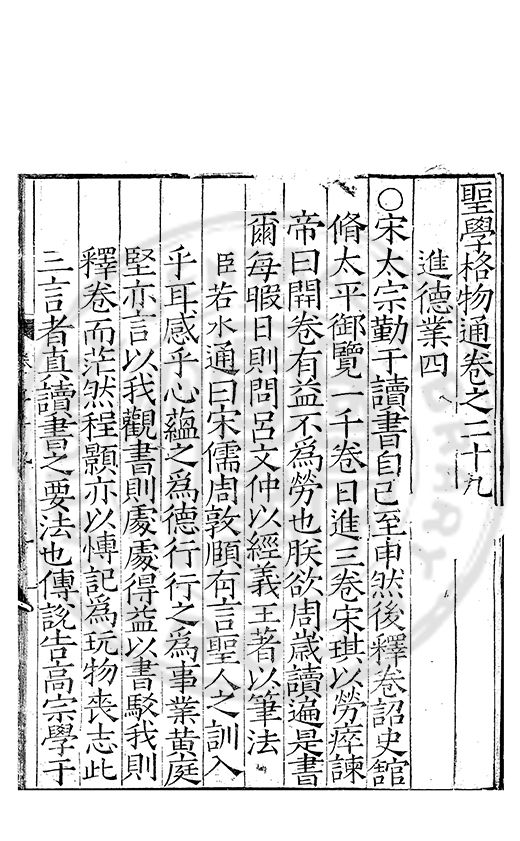 聖學格物通卷之二十九
進德業四
○宋太宗勤于讀書自巳至申然後釋卷詔史舘
脩太平御覽一千卷日進三卷宋琪以勞瘁諫
帝曰開卷有益不爲勞也朕欲周歲讀遍是書
爾每暇日則問呂文仲以經義王著以筆法
臣若水通曰宋儒周敦頤有言聖人之訓入
乎耳感乎心蘊之爲德行行之爲事業黄庭
堅亦言以我觀書則處處得益以書駁我則
釋卷而茫然程顥亦以愽記爲玩物喪志此
三言者真讀書之要法也傅說告高宗學于